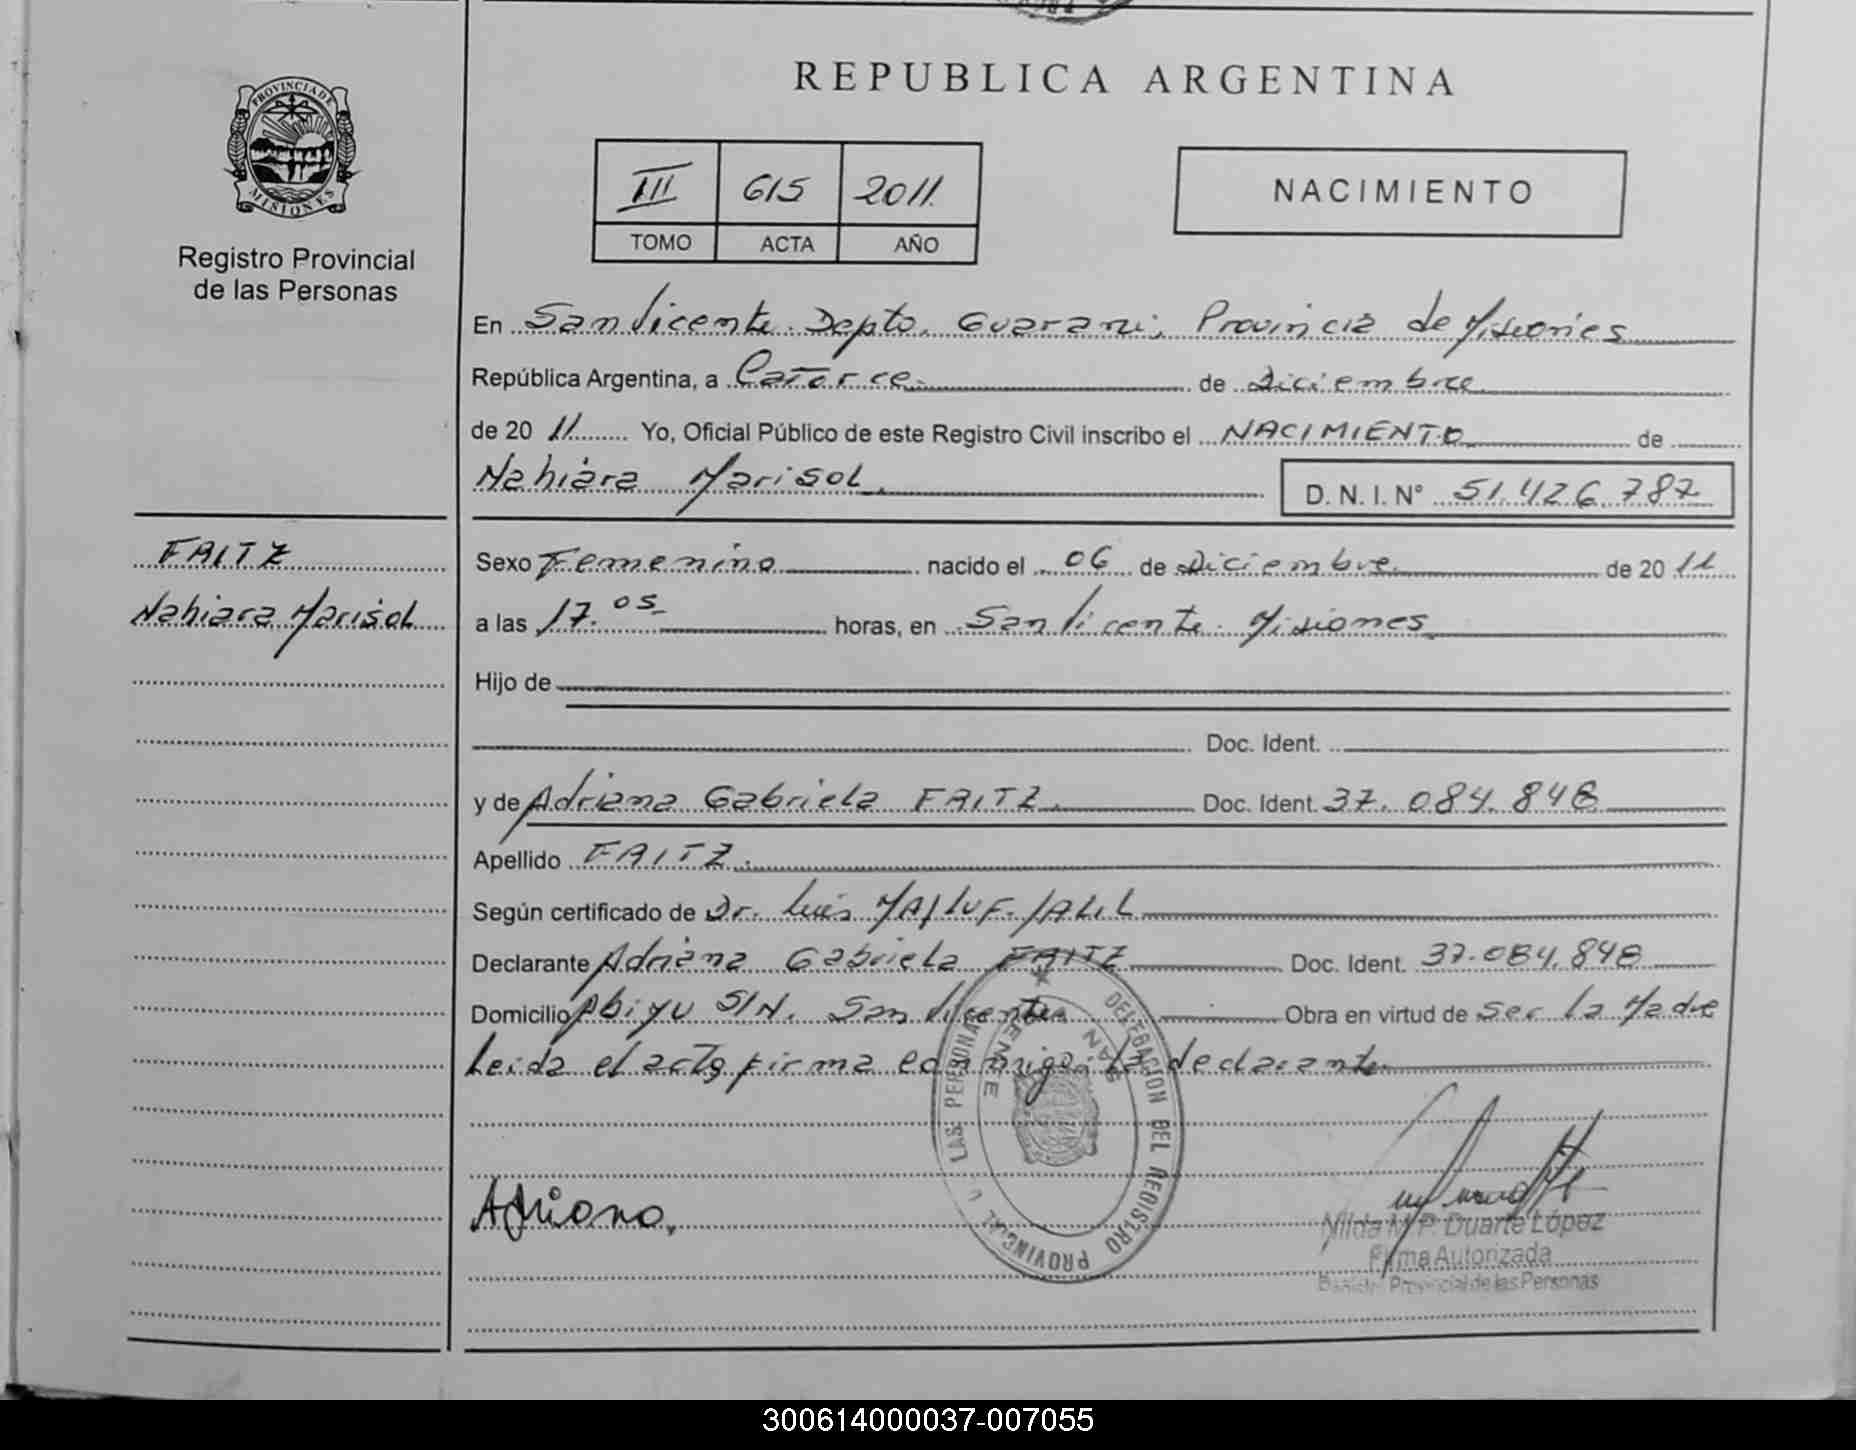 PROVINCIA DE
MISIONES
Registro Provincial
de las Personas
REPUBLICA ARGENTINA
III 615 2011
TOMO ACTA AÑO
NACIMIENTO
En San Vicente. Depto. Guarani, Provincia de Misiones
República Argentina, a Catorce de Diciembre
de 20 11 Yo, Oficial Público de este Registro Civil inscribo el NACIMIENTO de
Nahiara Marisol D. N. I. Nº 51.426.787
FRITZ
Nahiara Marisol
Sexo Femenino nacido el 06 de Diciembre de 20 11
a las 17.05 horas, en San Vicente. Misiones
Hijo de
Doc. Ident.
y de Adriana Gabriela FRITZ Doc. Ident. 37.084.848
Apellido FRITZ.
Según certificado de Dr. Luis
Declarante Adriana Gabriela FRITZ Doc. Ident. 37.084.848
Domicilio S/N. San Vicente Obra en virtud de Ser la Madre
Leida el acta firma conmigo la declarante
DELEGACION DEL REGISTRO PROVINCIAL LAS PERSONAS
SAN
Adriana.
Nilda M. P. Duarte López
Firma Autorizada
Registro Provincial de las Personas
300614000037-007055